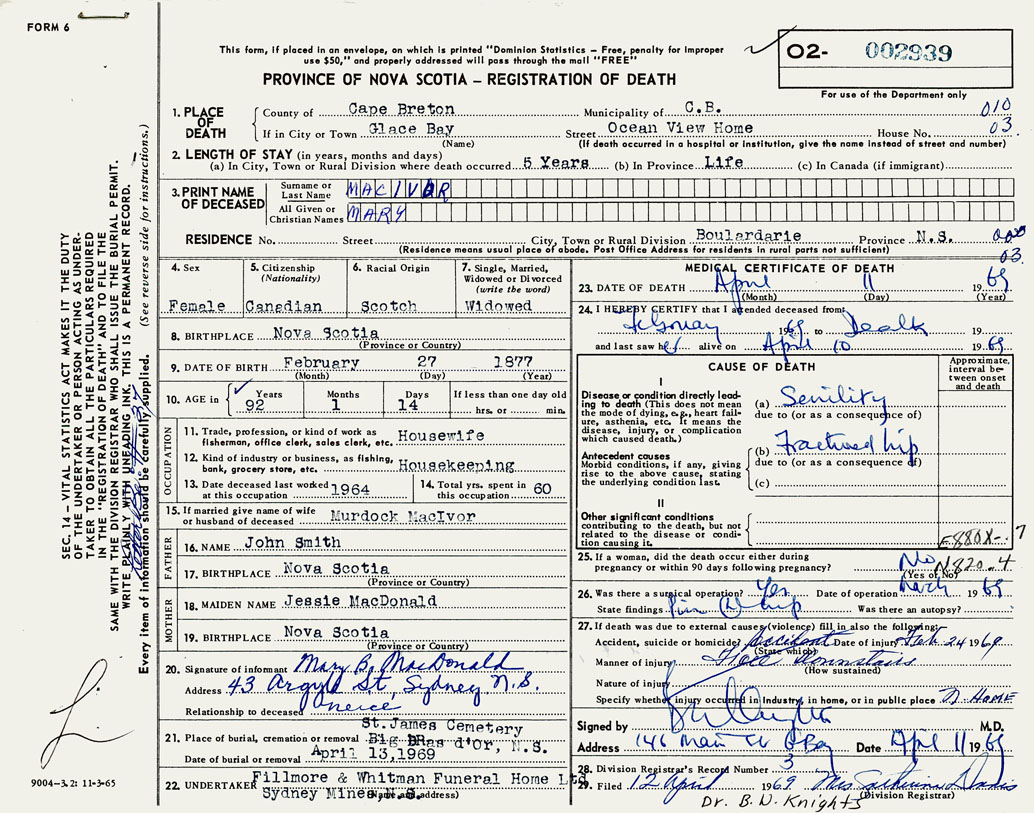 FORM 6
This form, if placed in an envelope, on which is printed "Dominion Statistics – Free, penalty for improper
use $50," and properly addressed will pass through the mail "FREE"
PROVINCE OF NOVA SCOTIA – REGISTRATION OF DEATH
O2- 002939
For use of the Department only
1. PLACE OF DEATH
County of Cape Breton Municipality of C.B. 010
If in City or Town Glace Bay Street Ocean View Home House No. 03
(Name) (If death occurred in a hospital or institution, give the name instead of street and number)
2. LENGTH OF STAY (in years, months and days)
(a) In City, Town or Rural Division where death occurred 5 Years (b) In Province Life (c) In Canada (if immigrant)
3. PRINT NAME OF DECEASED
Surname or Last Name MACIVOR
All Given or Christian Names MARY
RESIDENCE No. Street City, Town or Rural Division Boulardarie Province N.S.
(Residence means usual place of abode. Post Office Address for residents in rural parts not sufficient) 03.
4. Sex Female
5. Citizenship (Nationality) Canadian
6. Racial Origin Scotch
7. Single, Married, Widowed or Divorced (write the word) Widowed
8. BIRTHPLACE Nova Scotia
(Province or Country)
9. DATE OF BIRTH February 27 1877
(Month) (Day) (Year)
10. AGE in Years 92 Months 1 Days 14 If less than one day old hrs. or min.
OCCUPATION
11. Trade, profession, or kind of work as fisherman, office clerk, sales clerk, etc. Housewife
12. Kind of industry or business, as fishing, bank, grocery store, etc. Housekeeping
13. Date deceased last worked at this occupation 1964
14. Total yrs. spent in this occupation 60
15. If married give name of wife or husband of deceased Murdock MacIvor
FATHER
16. NAME John Smith
17. BIRTHPLACE Nova Scotia
(Province or Country)
MOTHER
18. MAIDEN NAME Jessie MacDonald
19. BIRTHPLACE Nova Scotia
(Province or Country)
20. Signature of informant Mary B. MacDonald
Address 43 Argyle St, Sydney N.S.
Relationship to deceased neice
21. Place of burial, cremation or removal St. James Cemetery Big Bras d'Or, N.S.
Date of burial or removal April 13,1969
22. UNDERTAKER Fillmore & Whitman Funeral Home Ltd
Sydney Mines N.S.
(Name and address)
MEDICAL CERTIFICATE OF DEATH
23. DATE OF DEATH April 11 1969
(Month) (Day) (Year)
24. I HEREBY CERTIFY that I attended deceased from
1969 to Death 19
and last saw her alive on April 10 1969
CAUSE OF DEATH
Approximate, interval between onset and death
I
Disease or condition directly leading to death (This does not mean the mode of dying, e.g., heart failure, asthenia, etc. It means the disease, injury, or complication which caused death.)
(a) Senility
due to (or as a consequence of)
Antecedent causes
Morbid conditions, if any, giving rise to the above cause, stating the underlying condition last.
(b) Fractured hip
due to (or as a consequence of)
(c)
II
Other significant conditions contributing to the death, but not related to the disease or condition causing it.
E880X-.7
25. If a woman, did the death occur either during pregnancy or within 90 days following pregnancy? No N820.4
(Yes or No)
26. Was there a surgical operation? Yes Date of operation March 1969
State findings Pin hip Was there an autopsy?
27. If death was due to external causes (violence) fill in also the following:
Accident, suicide or homicide? Accident Date of injury Feb 24 1969
(State which)
Manner of injury Fall Downstairs
(How sustained)
Nature of injury
Specify whether injury occurred in industry, in home, or in public place HOME
Signed by M.D.
Address 146 Main St G Bay Date April 11 1969
28. Division Registrar's Record Number 3
29. Filed 12 April 1969 Mrs Catherine Davis
(Division Registrar)
Dr. B. N. Knights
SEC. 14 – VITAL STATISTICS ACT MAKES IT THE DUTY
OF THE UNDERTAKER OR PERSON ACTING AS UNDER-
TAKER TO OBTAIN ALL THE PARTICULARS REQUIRED
IN THE "REGISTRATION OF DEATH" AND TO FILE THE
SAME WITH THE DIVISION REGISTRAR WHO SHALL ISSUE THE BURIAL PERMIT.
WRITE PLAINLY WITH UNFADING INK. THIS IS A PERMANENT RECORD.
Every item of information should be carefully supplied. (See reverse side for instructions.)
9004–3.2: 11-3-65